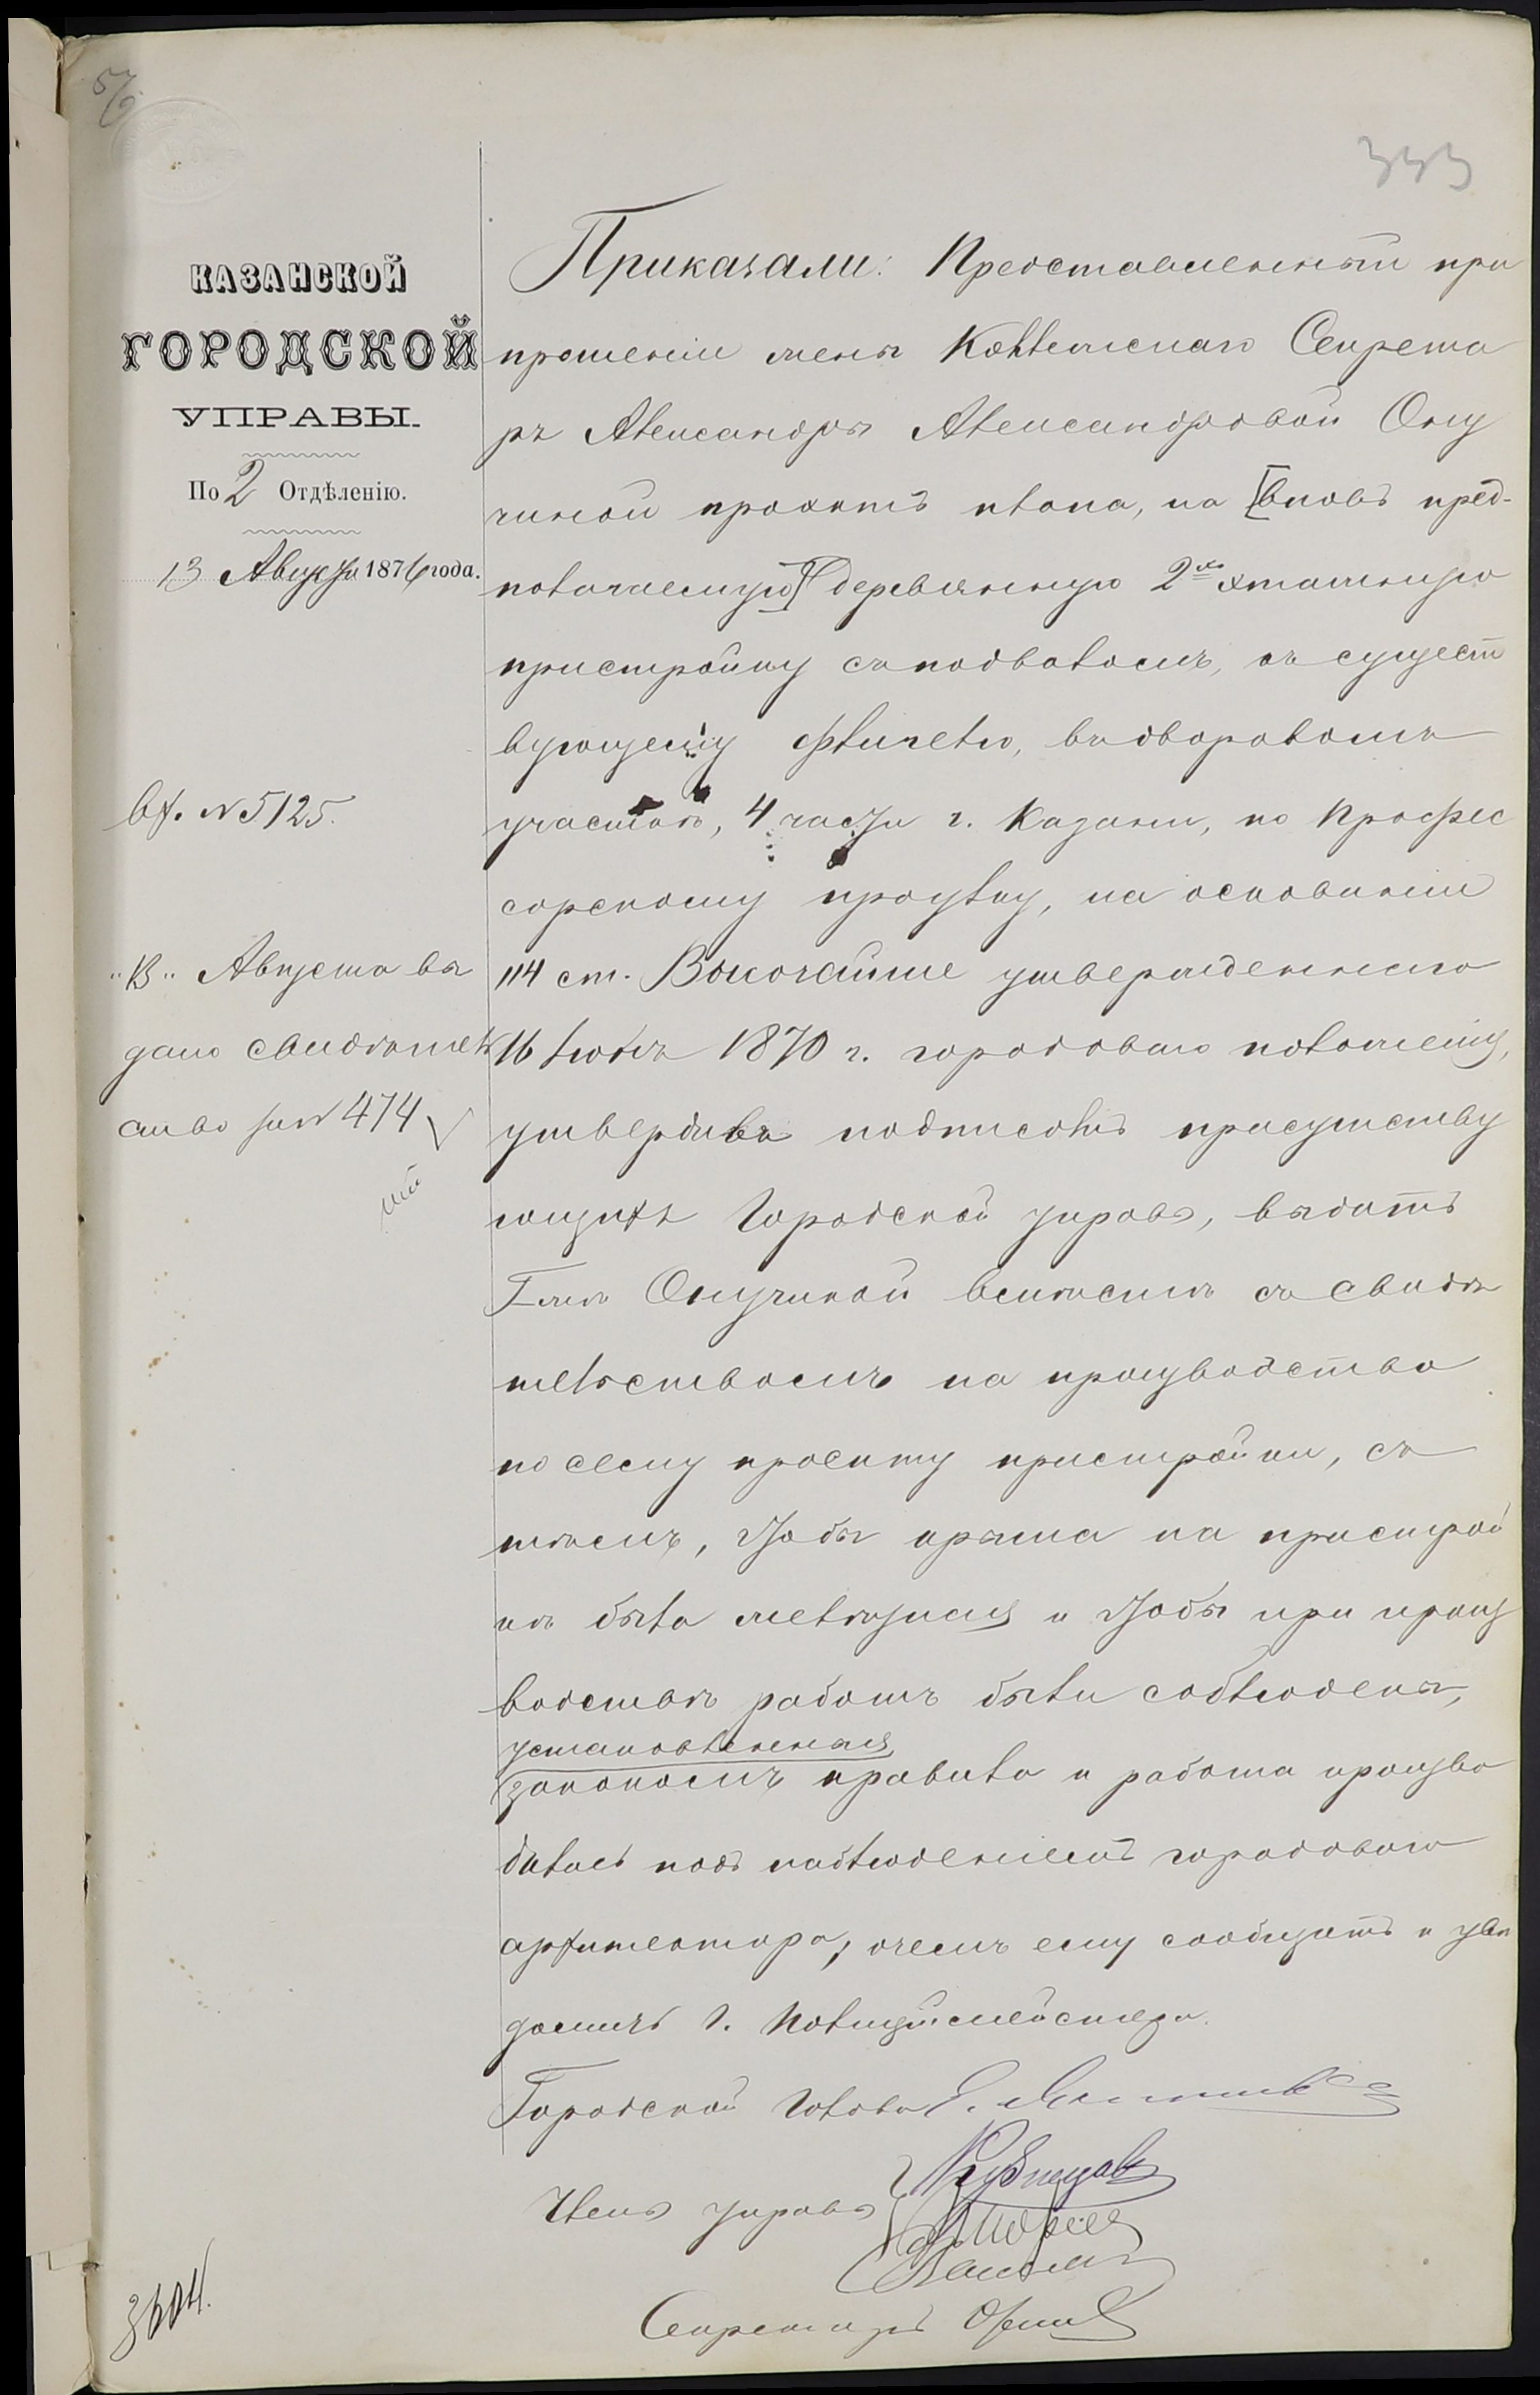 333
КАЗАНСКОЙ
ГОРОДСКОЙ
УПРАВЫ.
По 2 Отдѣленію.
13 Августа 1876 года.
вх. № 5125.
"13" Августа вы
дано свидѣтель
ство за № 474
Приказали: Представленный при
прошеніи жены Коллежскаго Секрета
ря Александры Александровой Ону
чиной проэктъ плана, на [вновь пред-
полагаемую] деревянную 2хъ этажную
пристройку съ подваломъ, къ сущест
вующему флигелю, въ дворовомъ
участкѣ, 4 части г. Казани, по Профес
сорскому проулку, на основаніи
114 ст. Высочайше утвержденнаго
16 Іюня 1870 г. городоваго положенія,
утвердивъ подписомъ присутству
ющихъ Городской управы, выдать
Г-жѣ Онучиной вмѣстѣ съ свидѣ
тельствомъ на производство
по сему проекту пристройки, съ
тѣмъ, чтобы крыша на пристрой
кѣ была желѣзная и чтобы при произ
водствѣ работъ были соблюдены,
установленныя
закономъ правила и работа произво
дилась подъ наблюденіемъ городоваго
архитектора, о чемъ ему сообщить и увѣ
домить г. Полиціймейстера.
Городской Голова
Члены управы Кузнецовъ
Секретарь